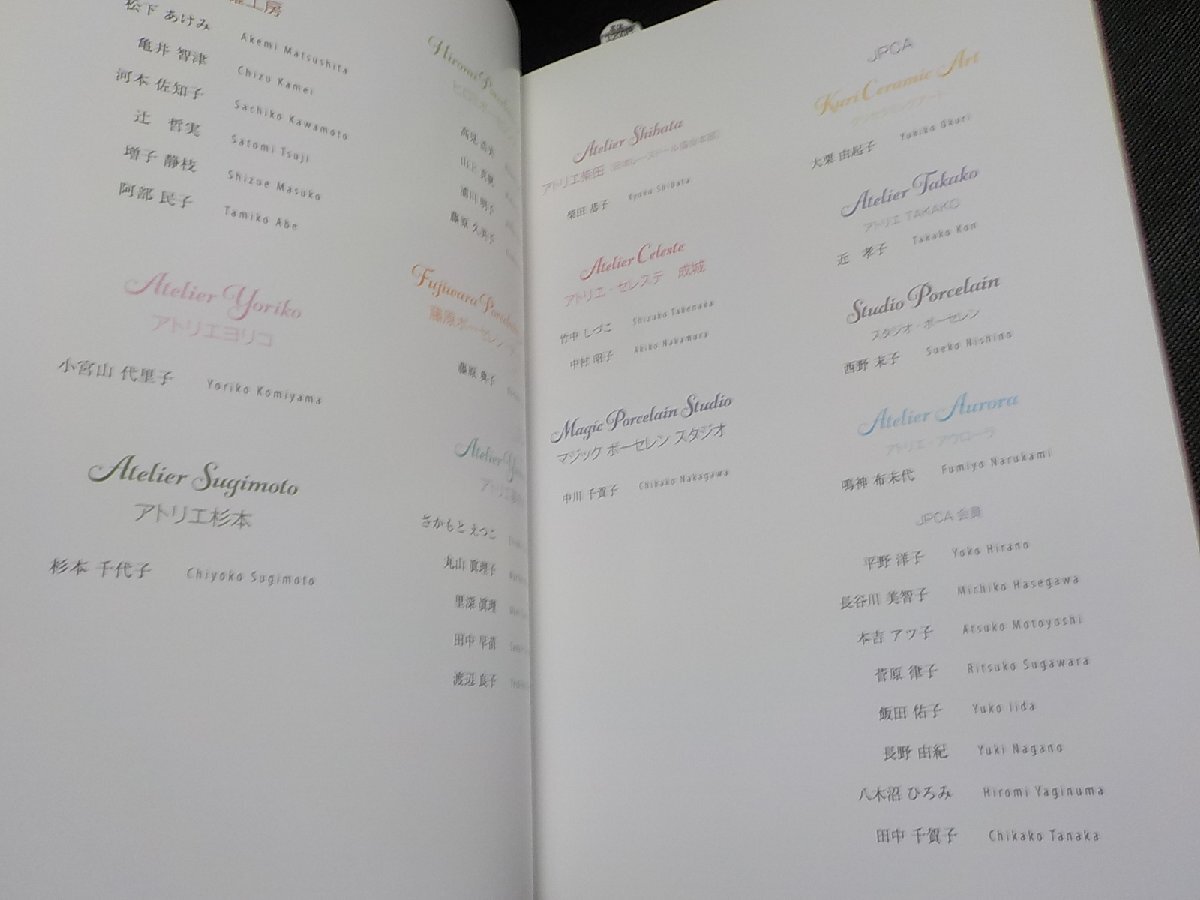 工房
松下 あけみ Akemi Matsushita
亀井 智津 Chizu Kamei
河本 佐知子 Sachiko Kawamoto
辻 哲実 Satomi Tsuji
増子 静枝 Shizue Masuko
阿部 民子 Tamiko Abe
Atelier Yoriko
アトリエヨリコ
小宮山 代里子 Yoriko Komiyama
Atelier Sugimoto
アトリエ杉本
杉本 千代子 Chiyoko Sugimoto
Hiromi
藤原 久美子
Fujiwara Porcelain
藤原ポーセレン
Atelier
さかもと えつこ
丸山 眞理子
田中 早苗
渡辺 良子
Atelier Shibata
アトリエ柴田
柴田 恭子 Kyoko Shibata
Atelier Celeste
アトリエ・セレステ 成城
竹中 しづこ Shizuko Takenaka
中村 昭子 Akiko Nakamura
Magic Porcelain Studio
マジック ポーセレン スタジオ
中川 千賀子 Chikako Nakagawa
JPCA
Kuri Ceramic Art
大栗 由起子 Yukiko Okuri
Atelier Takako
アトリエ TAKAKO
近 孝子 Takako Kon
Studio Porcelain
スタジオ・ポーセレン
西野 末子 Sueko Nishino
Atelier Aurora
アトリエ・アウローラ
鳴神 布未代 Fumiyo Narukami
JPCA 会員
平野 洋子 Yoko Hirano
長谷川 美智子 Michiko Hasegawa
本吉 アツ子 Atsuko Motoyoshi
菅原 律子 Ritsuko Sugawara
飯田 佑子 Yuko Iida
長野 由紀 Yuki Nagano
八木沼 ひろみ Hiromi Yaginuma
田中 千賀子 Chikako Tanaka